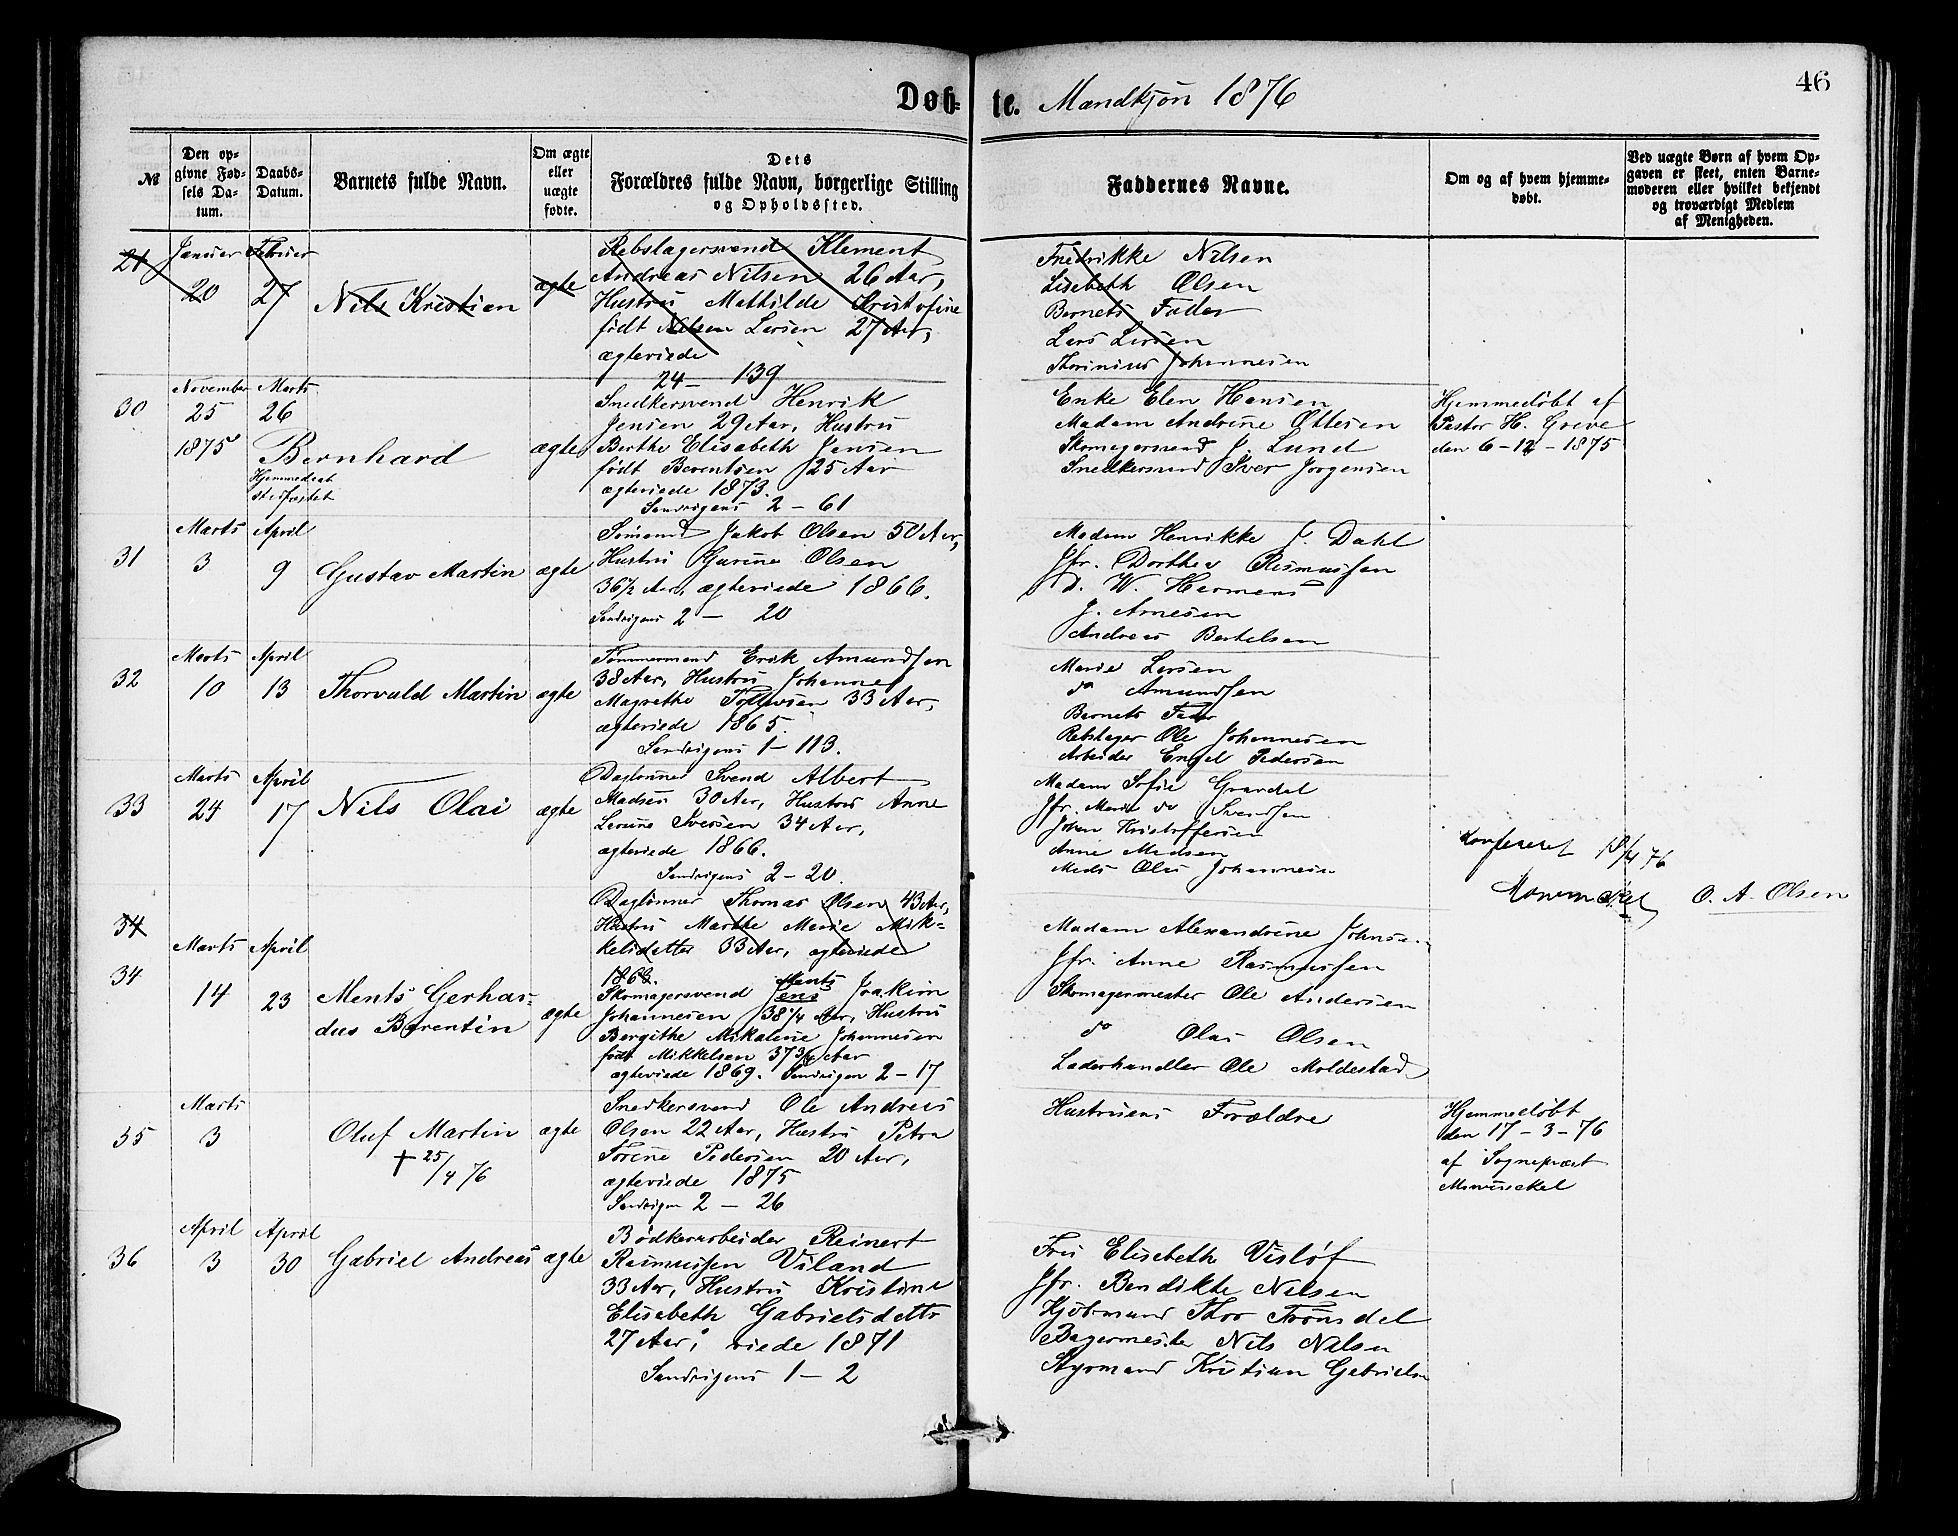 Døb-
te. Mandkjøn 1876
46
№
Den opgivne Fødsels Datum.
Daabs-Datum.
Barnets fulde Navn.
Om ægte eller uægte fødte.
Dets
Forældres fulde Navn, borgerlige Stilling
og Opholdssted.
Faddernes Navne.
Om og af hvem hjemme-
døbt.
Ved uægte Børn af hvem Op-
gaven er skeet, enten Barne-
moderen eller hvilket bekjendt
og troværdigt Medlem
af Menigheden.
21
Januar Februar
20 27
Nils Kristien
ægte
Rebslagersvend Klement
Andreas Nilsen 26 Aar,
Hustru Mathilde Kristofine
født Nilsen Larsen 27 Aar,
ægteviede
24 – 139
Fredrikke Nilsen
Lisebeth Olsen
Barnets Fader
Lars Larsen
Thorinius Johannesen
30
November Marts
25 26
1875
Bernhard
Hjemmedaab
stadfæstet
ægte
Snedkersvend Henrik
Jensen 29 Aar, Hustru
Berthe Elisabeth Jensen
født Berentsen 25 Aar
ægteviede 1873.
Sandvigens 2 – 61
Enke Elen Hansen
Madam Andrine Ottesen
Skomagersvend J. Lund
Snedkersvend Iver Jørgensen
Hjemmedøbt af
Pastor H. Greve
den 6 – 12 – 1875
31
Marts April
3 9
Gustav Martin
ægte
Sømand Jakob Olsen 50 Aar,
Hustru Gurine Olsen
36½ Aar, ægteviede 1866.
Sandvigens 2 – 20
Madam Henrikke S. Dahl
Jfr. Dorthea Rasmussen
D. W. Hermens
J. Arnesen
Andreas Bertelsen
32
Marts April
10 13
Thorvald Martin
ægte
Tømmermand Erik Amundsen
38 Aar, Hustru Johanne
Magrethe Tollevsen 33 Aar,
ægteviede 1865.
Sandvigens 1 – 113.
Marie Larsen
do Amundsen
Barnets Fader
Rebslager Ole Johannesen
Arbeider Engel Pedersen
33
Marts April
24 17
Nils Olai
ægte
Daglønner Svend Albert
Madsen 30 Aar, Hustru Anne
Larsine Iversen 34 Aar,
ægteviede 1866.
Sandvigens 2 – 20
Madam Sofie Grandal
Jfr. Marie do Svendsen
Johan Kristoffersen
Anne Madsen
Mads Olai Johannesen
Konfereret 18/4 76
Monrad O. A. Olsen
34
Daglønner Thomas Olsen 43 Aar,
Hustru Marthe Marie Mik-
kelsdatter 33 Aar, ægteviede
1866.
34
Marts April
14 23
Ments Gerhar-
dus Berentin
ægte
Ments
Skomagersvend Jens Joakim
Johannesen 38 1/4 Aar, Hustru
Bergithe Mikaline Johannesen
født Mikkelsen 37 3/4 Aar
ægteviede 1869. Sandvigen 2 – 17
Madam Alexandrine Johnsen
Jfr. Anne Rasmussen
Skomagermester Ole Andersen
do Olai Olsen
Læderhandler Ole Moldestad
35
Marts
3
Oluf Martin
† 25/4 76
ægte
Snedkersvend Ole Andreas
Olsen 22 Aar, Hustru Petra
Sørine Pedersen 20 Aar,
ægteviede 1875
Sandvigen 2 – 26
Hustruens Forældre
Hjemmedøbt
den 17 – 3 – 76
af Sognepræst
36
April April
3 30
Gabriel Andreas
ægte
Bødkerarbeider Reinert
Rasmussen Viland
33 Aar, Hustru Kristine
Elisabeth Gabrielsdatter
27 Aar, viede 1871
Sandvigens 1 – 2
Fru Elisebeth Visløf
Jfr. Bendikte Nilsen
Kjøbmand Thor Frønsdel
Bagermester Nils Nilsen
Styrmand Kristian Gabrielsen